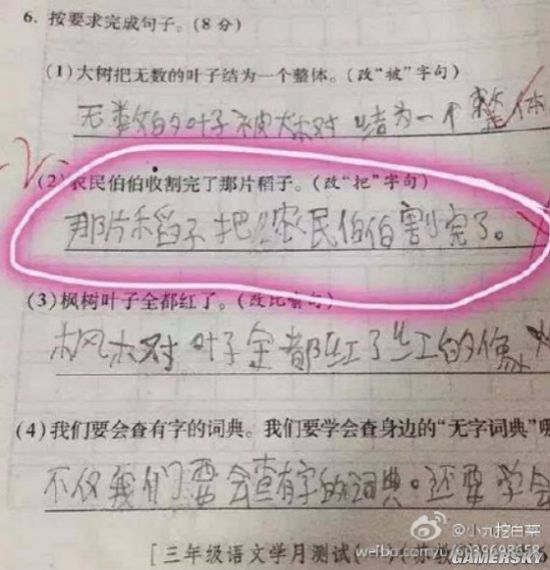 6. 按要求完成句子。(8分)
(1)大树把无数的叶子结为一个整体。(改“被”字句)
无数的叶子被大树结为一个整体
-2
(2)农民伯伯收割完了那片稻子。(改“把”字句)
那片稻子把农民伯伯割完了。
(3)枫树叶子全都红了。(改比喻句)
枫树叶子全都红了红的像
(4)我们要会查有字的词典。我们要学会查身边的“无字词典”
不仅我们要会查有字的词典。还要学会
@小九挖白菜
[三年级语文学月测试(一)(苏教
weibo.com/u/6039698658
GAMERSKY